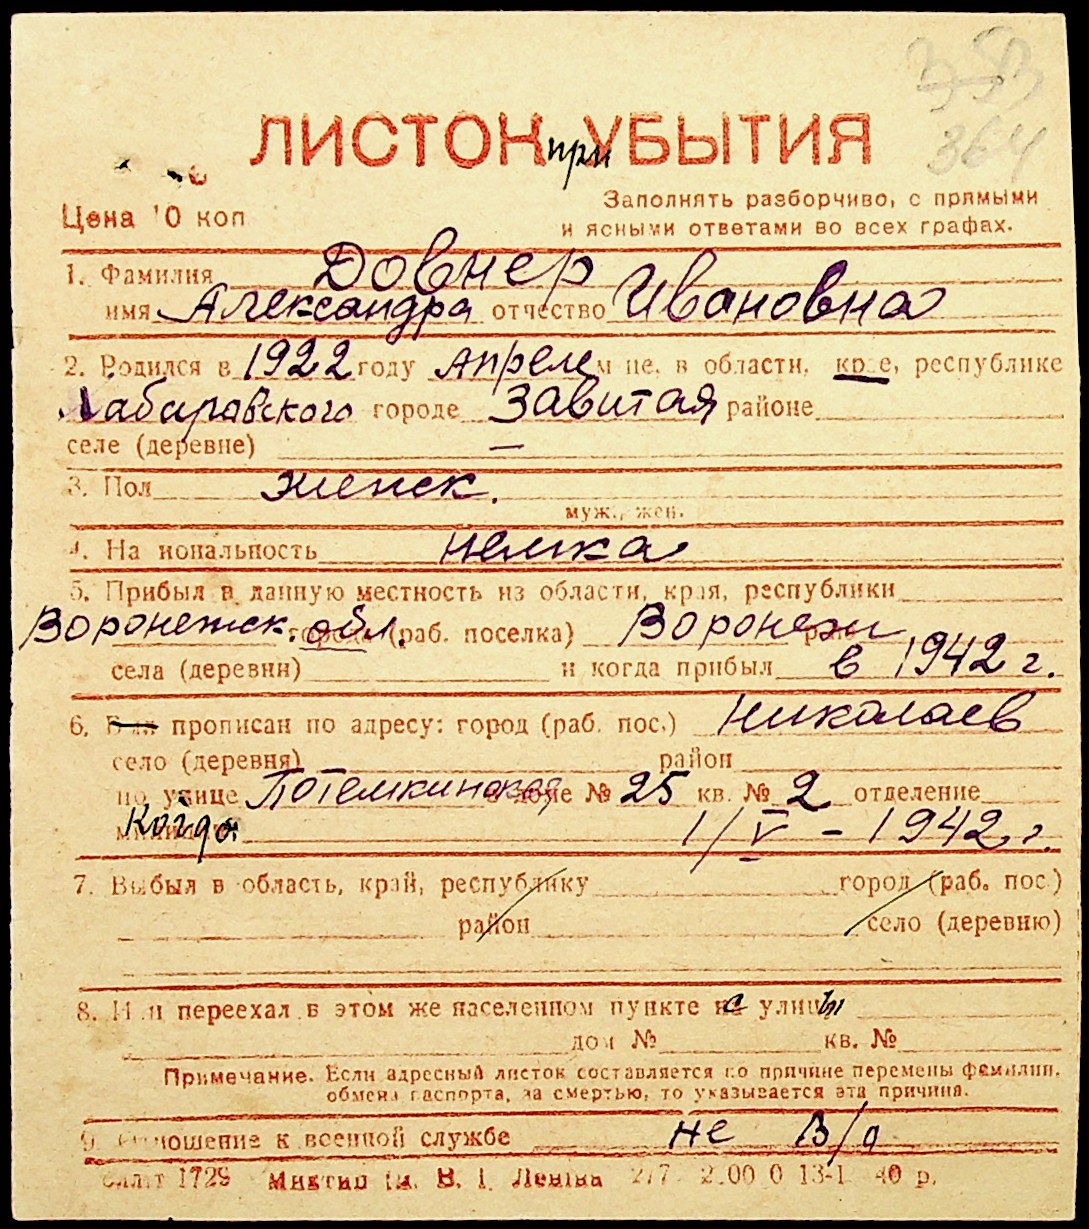 364
ЛИСТОК при УБЫТИЯ
Цена 10 коп
Заполнять разборчиво, с прямыми
и ясными ответами во всех графах.
1. Фамилия Довнер
имя Александра отчество Ивановна
2. Родился в 1922 году апреле м-це, в области, крае, республике
Хабаровского городе Завитая районе
селе (деревне) —
3. Пол женск.
муж., жен.
4. Национальность немка
5. Прибыл в данную местность из области, края, республики
Воронежск. обл. (раб. поселка) Воронеж
села (деревни) и когда прибыл в 1942 г.
6. Был прописан по адресу: город (раб. пос.) Николаев
село (деревня) район
по улице Потемкинская доме № 25 кв. № 2 отделение
Когда 1/V - 1942 г.
7. Выбыл в область, край, республику город (раб. пос.)
район село (деревню)
8. Или переехал в этом же населенном пункте на улицы
дом № кв. №
Примечание. Если адресный листок составляется по причине перемены фамилии,
обмена паспорта, за смертью, то указывается эта причина.
9. Отношение к военной службе не в/о
1729 Миктип им. В. І. Леніна 277 13-1 40 р.